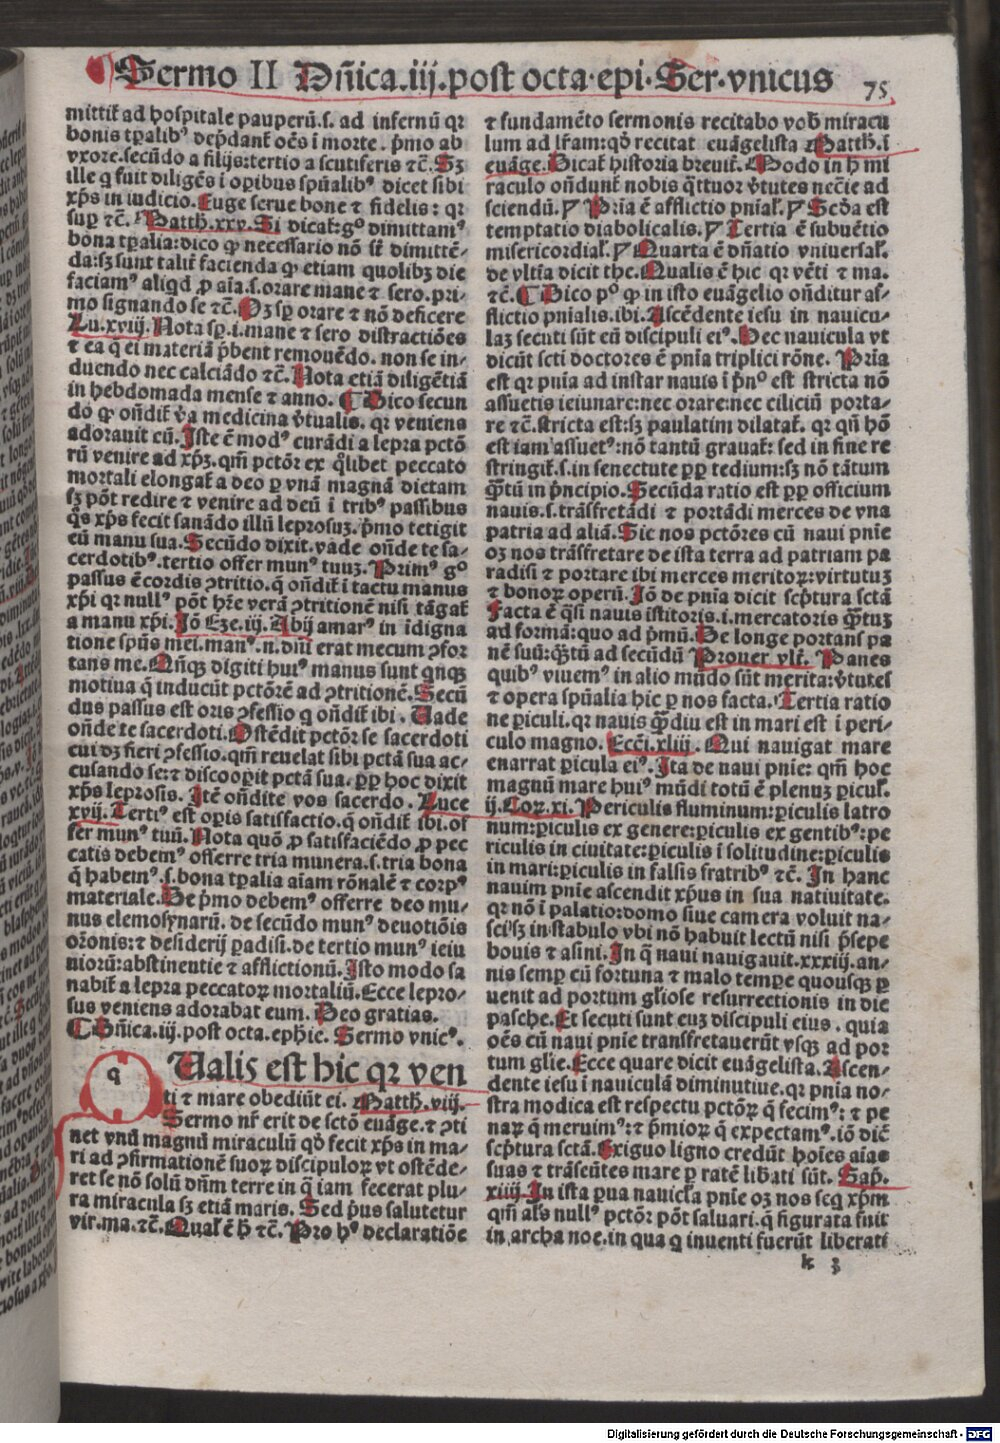 Sermo II Dñica.iij.post octa.epi.Ser.vnicus
75
mittit̃ ad hospitale pauperũ.s. ad infernũ qꝛ
bonis tp̃alibꝰ dep̃dant̃ oẽs ĩ morte. p̃mo ab
vxore.secũdo a filijs:tertio a scutiferis ⁊c̃. Sꝫ
ille q̃ fuit diligẽs ĩ oꝑibus sp̃ualibꝰ dicet sibi
xp̃s in iudicio. Euge serue bone ⁊ fidelis: qꝛ
suꝑ ⁊c̃. Matth.xxv. Si dicat̃:gͦ dimittamꝰ
bona tp̃alia:dico ꝙ necessario nõ sũt dimittẽ-
da:sꝫ sunt talit̃ facienda ꝙ etiam quolibꝫ die
faciamꝰ aliqd̃ ꝓ aĩa.s.orare mane ⁊ sero.pri-
mo signando se ⁊c̃. Oꝫ sp̃ orare ⁊ nõ deficere
Lu.xviij. Nota sp̃.i.mane ⁊ sero distractiões
⁊ ea q̃ ei materiã p̃bent remouẽdo. non se in-
duendo nec calciãdo ⁊c̃. Nota etiã diligẽtiã
in hebdomada mense ⁊ anno. ¶ Dico secun
do ꝙ oñdit̃ ṽa medicina ṽtualis. qꝛ veniens
adorauit eũ. Iste ẽ modꝰ curãdi a lepra pctõ
rũ venire ad xp̃ꝫ. qm̃ pctõr ex q̃libet peccato
mortali elongat̃ a deo ꝑ vnã magnã dietam
sꝫ põt redire ⁊ venire ad deũ ĩ tribꝰ passibus
q̃s xp̃s fecit sanãdo illũ leprosuꝫ. p̃mo tetigit
eũ manu sua. Secũdo dixit.vade oñde te sa-
cerdotibꝰ.tertio offer munꝰ tuuꝫ. Primꝰ gͦ
passus ẽ cordis ꝯtritio.q̃ oñdit̃ ĩ tactu manus
xp̃i qꝛ nullꝰ põt hr̃e verã ꝯtritionẽ nisi tãgat̃
a manu xp̃i. Iõ Eze.iij. Abij amarꝰ in ĩdigna
tione sp̃us mei.manꝰ.n.dñi erat mecum ꝯfor
tans me. Qñqꝫ digiti huiꝰ manus sunt qnqꝫ
motiua q̃ inducũt pctõrẽ ad ꝯtritionẽ. Secũ
dus passus est oris ꝯfessio q̃ oñdit̃ ibi. Uade
oñde te sacerdoti. Ostẽdit pctõr se sacerdoti
cui dꝫ fieri ꝯfessio.qm̃ reuelat sibi pctã sua ac-
cusando se:⁊ discooꝑit pctã sua. ꝓp̃ hoc dixit
xp̃s leprosis. Itẽ oñdite vos sacerdo. Luce
xvij. Tertiꝰ est oꝑis satisfactio.q̃ oñdit̃ ibi.of
fer munꝰ tuũ. Nota quõ ꝓ satisfaciẽdo ꝓ pec
catis debemꝰ offerre tria munera.s.tria bona
q̃ habemꝰ.s.bona tp̃alia aĩam rõnalẽ ⁊ corpꝰ
materiale. De p̃mo debemꝰ offerre deo mu-
nus elemosynarũ. de secũdo munꝰ deuotiõis
or̃onis:⁊ desiderij ꝑadisi.de tertio munꝰ ieiu
niorũ:abstinentie ⁊ afflictionũ. Isto modo sa
nabit̃ a lepra peccatoꝝ mortaliũ. Ecce lepro-
sus veniens adorabat eum. Deo gratias.
¶ Dñica.iij.post octa.eph̃ie. Sermo vnicꝰ.
q
Ualis est hic qꝛ ven
ti ⁊ mare obediũt ei. Matth.viij.
Sermo nr̃ erit de sctõ euãge.⁊ ꝯti
net vnũ magnũ miraculũ qd̃ fecit xp̃s in ma-
ri ad ꝯfirmationẽ suoꝝ discipuloꝝ vt ostẽde-
ret se nõ solũ dñm terre in q̃ iam fecerat plu-
ra miracula sꝫ etiã maris. Sed p̃us salutetur
vir.ma.⁊c̃. Qual̃ ẽ h̃ ⁊c̃. Pro hꝰ declaratiõe
⁊ fundamẽto sermonis recitabo vob̃ miracu
lum ad lr̃am:qd̃ recitat euãgelista Matth.ĩ
euãge. Dicat̃ historia breuit̃. Modo in h̃ mi
raculo oñdunt̃ nobis q̃ttuor ṽtutes nec̃ie ad
sciendũ. ¶ Pria ẽ afflictio pnĩal̃. ¶ Scd̃a est
temptatio diabolicalis. ¶ Tertia ẽ subuẽtio
misericordial̃. ¶ Quarta ẽ dñatio vniuersal̃.
de vltĩa dicit the. Qualis ẽ hic qr vẽti ⁊ ma.
⁊c̃. ¶ Dico pͦ ꝙ in isto euãgelio oñditur af-
flictio pnĩalis.ibi. Ascẽdente iesu in nauicu-
laꝫ secuti sũt eũ discipuli eiꝰ. Hec nauicula vt
dicũt sctĩ doctores ẽ pnĩa triplici rõne. Pria
est qꝛ pnĩa ad instar nauis ĩ p̃nͦ est stricta nõ
assuetis ieiunare:nec orare:nec ciliciũ porta-
re ⁊c̃.stricta est:sꝫ paulatim dilatat̃. qꝛ qñ hõ
est iam assuetꝰ:nõ tantũ grauat̃: sed in fine re
stringit̃.s.in senectute ꝓp̃ tedium:sꝫ nõ tãtum
q̃tũ in p̃ncipio. Secũda ratio est ꝓp̃ officium
nauis.s.trãsfretãdi ⁊ portãdi merces de vna
patria ad aliã. Sic nos pctõres cũ naui pnĩe
oꝫ nos trãsfretare de ista terra ad patriam pa
radisi ⁊ portare ibi merces meritoꝝ:virtutuꝫ
⁊ bonoꝝ operũ. Iõ de pnĩa dicit scp̃tura sctã
Facta ẽ q̃si nauis ĩstitoris.i.mercatoris q̃tuꝫ
ad formã:quo ad p̃mũ. De longe portans pa
nẽ suũ:q̃tũ ad secũdũ Prouer.vlt̃. Panes
quibꝰ viuemꝰ in alio mũdo sũt merita:ṽtutes
⁊ opera sp̃ualia hic ꝑ nos facta. Tertia ratio
ne piculi.qꝛ nauis q̃diu est in mari est ĩ peri-
culo magno. Ecc̃i.xliij. Qui nauigat mare
enarrat ꝑicula eiꝰ. Ita de naui pnĩe: qm̃ hoc
magnũ mare huiꝰ mũdi totũ ẽ plenuꝫ picul̃.
ij.Coꝝ.xi. Periculis fluminum:ꝑiculis latro
num:ꝑiculis ex genere:ꝑiculis ex gentibꝰ:pe
riculis in ciuitate:ꝑiculis ĩ solitudine:ꝑiculis
in mari:ꝑiculis in falsis fratribꝰ ⁊c̃. In hanc
nauim pnĩe ascendit xp̃us in sua natiuitate.
qꝛ nõ ĩ palatio:domo siue camera voluit na-
sci:sꝫ in stabulo vbi nõ habuit lectũ nisi p̃sepe
bouis ⁊ asini. In q̃ naui nauigauit.xxxiij.an-
nis semꝑ cũ fortuna ⁊ malo temꝑe quousqꝫ ꝑ
uenit ad portum gl̃iose resurrectionis in die
pasche. Et secuti sunt euꝫ discipuli eius. quia
oẽs cũ naui pnĩe transfretauerũt vsqꝫ ad por
tum gl̃ie. Ecce quare dicit euãgelista. Ascen-
dente iesu ĩ nauiculã diminutiue.qꝛ pnĩa no-
stra modica est respectu pctõꝝ q̃ fecimꝰ: ⁊ pe
naꝝ q̃ meruimꝰ:⁊ p̃mioꝝ q̃ expectamꝰ.iõ dic̃
scp̃tura sctã. Exiguo ligno credũt hoĩes aĩas
suas ⁊ trãseũtes mare ꝑ ratẽ liƀati sũt. Sap̃.
xiiij. In ista ꝑua nauicl̃a pnĩe oꝫ nos seq̃ xp̃m
qm̃ al̃s nullꝰ pctõr põt saluari.q̃ figurata fuit
in archa noe.in qua q̃ inuenti fuerũt liberati
k 3
Digitalisierung gefördert durch die Deutsche Forschungsgemeinschaft - DFG